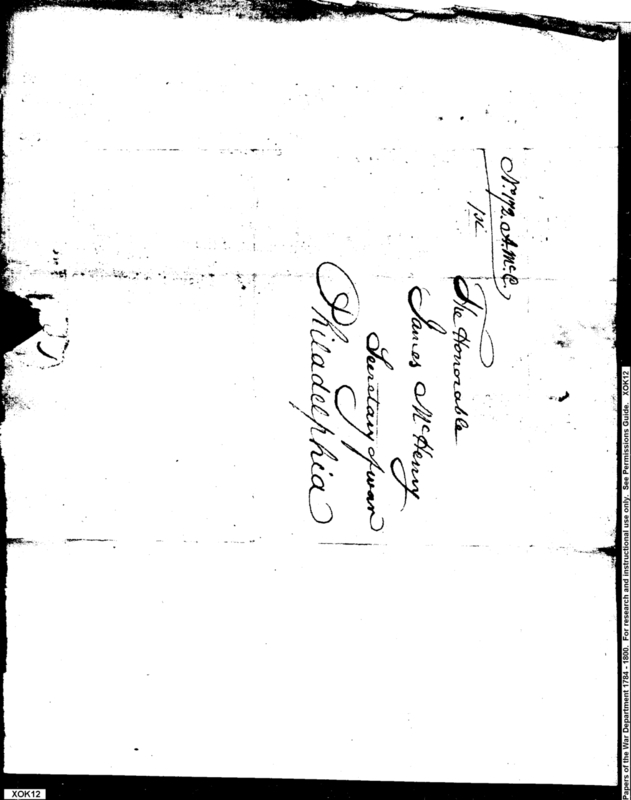 No. 172. A. McC.
The Honorable
James McHenry
Secretary of war
Philadelphia
Papers of the War Department 1784 - 1800. For research and instructional use only. See Permissions Guide. XOK12
XOK12